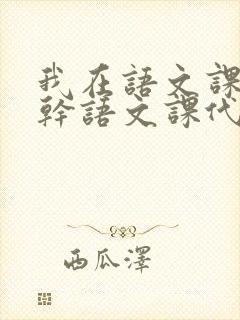 我在語文課
幹語文課代
西瓜澤